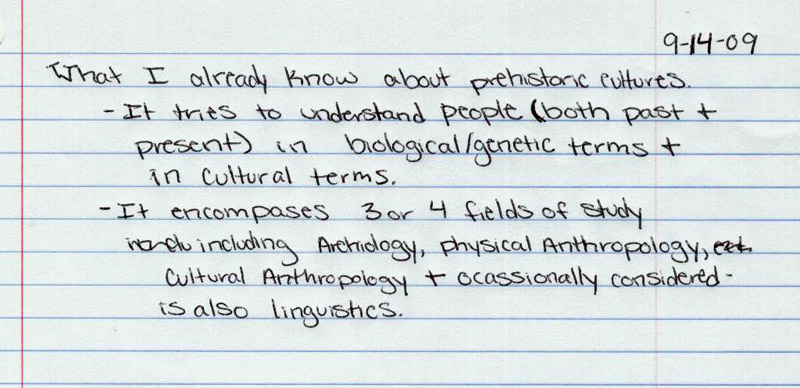 9-14-09
What I already know about prehistoric cultures.
- It tries to understand people (both past +
present) in biological/genetic terms +
in cultural terms.
- It encompases 3 or 4 fields of study
including Archiology, physical Anthropology,
Cultural Anthropology + ocassionally considered -
is also linguistics.